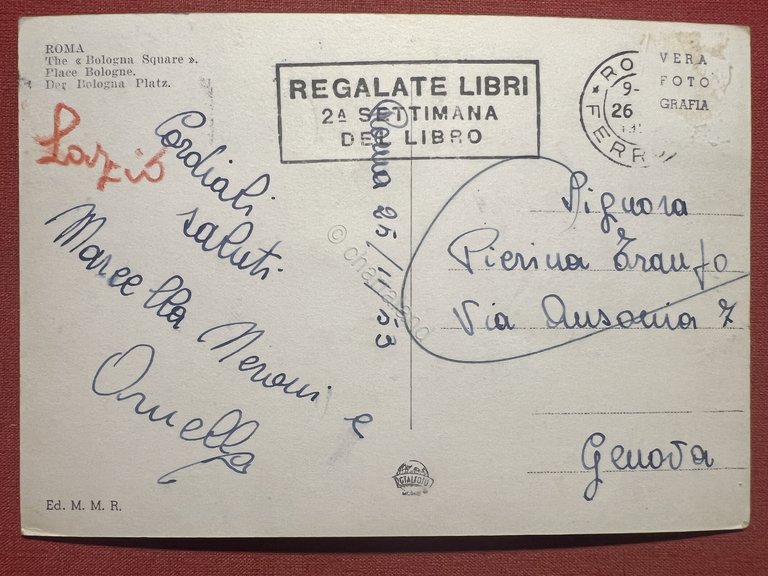 ROMA
The « Bologna Square ».
Place Bologne.
Der Bologna Platz.
Lazio
REGALATE LIBRI
2ª SETTIMANA
DEL LIBRO
RO
9-
26
FERR
VERA
FOTO
GRAFIA
Cordiali
saluti
Marcella Neroni e
Ornella
Roma 25/1/53
Signora
Pierina
Via Ausonia 7
Genova
Ed. M. M. R.